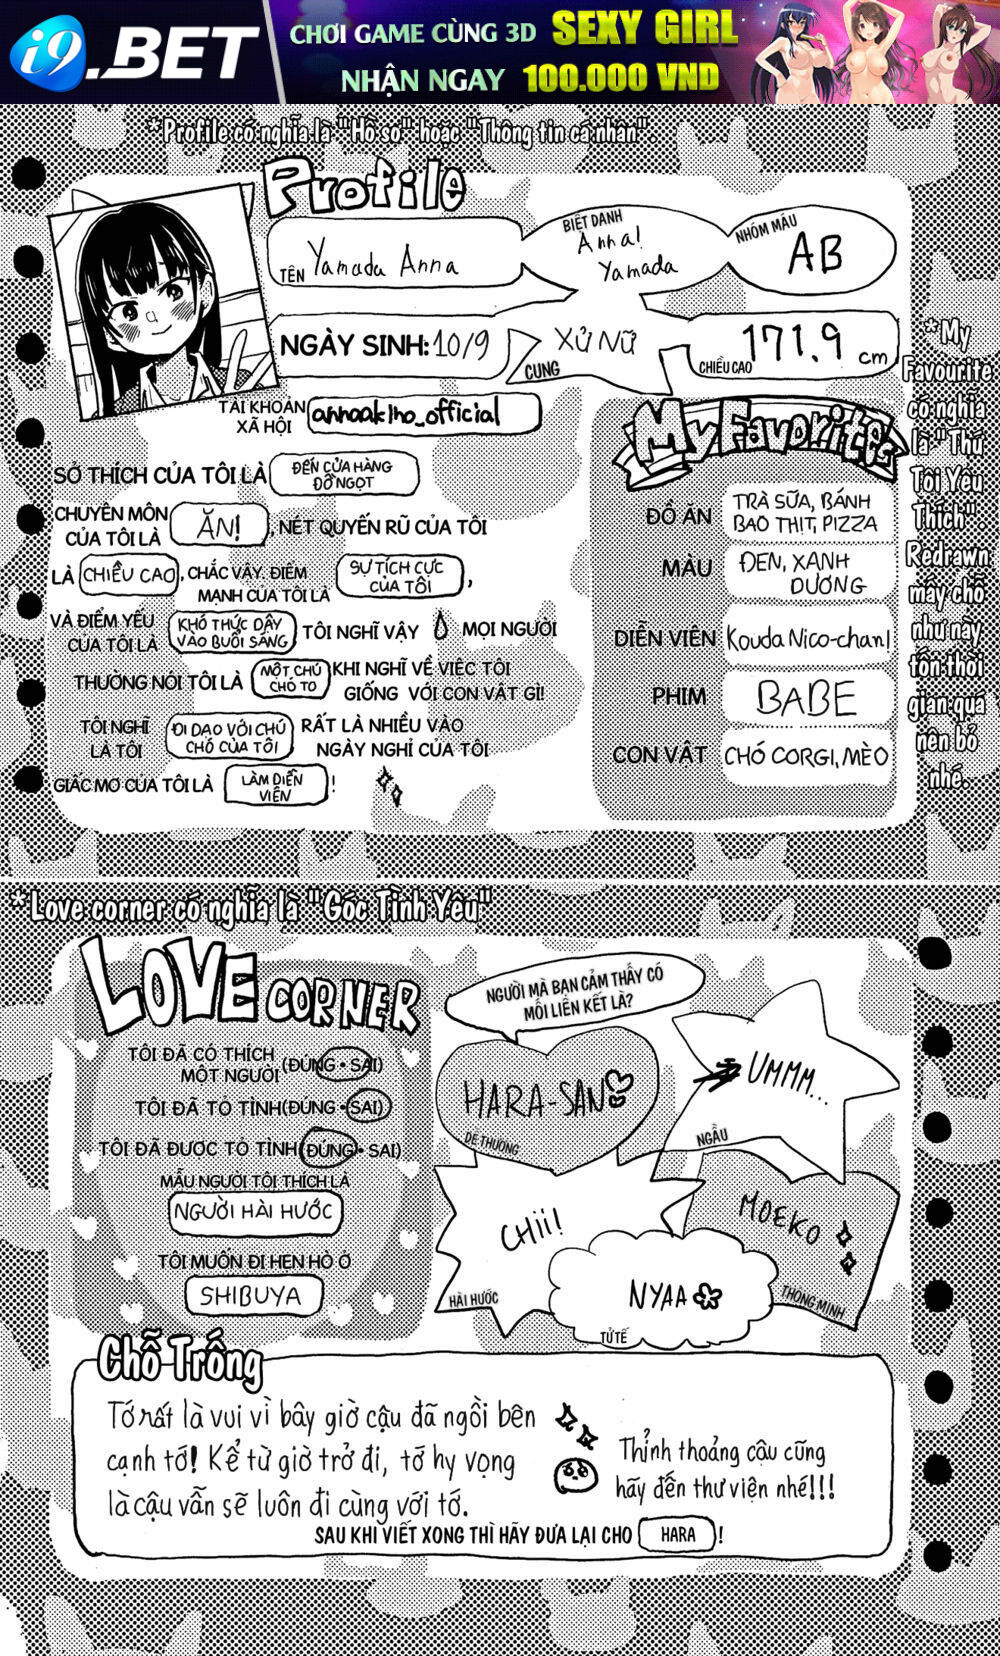 i9.BET
CHƠI GAME CÙNG 3D SEXY GIRL
NHẬN NGAY 100.000 VND
*Profile có nghĩa là "Hồ sơ" hoặc "Thông tin cá nhân".
Profile
TÊN Yamada Anna
BIỆT DANH
Anna!
Yamada
NHÓM MÁU
AB
NGÀY SINH: 10/9
XỬ NỮ
CUNG
171.9 cm
CHIỀU CAO
TÀI KHOẢN
XÃ HỘI
annaakino_official
SỞ THÍCH CỦA TÔI LÀ
ĐẾN CỬA HÀNG
ĐỒ NGỌT
CHUYÊN MÔN
CỦA TÔI LÀ
ĂN!
, NÉT QUYẾN RŨ CỦA TÔI
LÀ CHIỀU CAO, CHẮC VẬY. ĐIỂM
MẠNH CỦA TÔI LÀ
SỰ TÍCH CỰC
CỦA TÔI
,
VÀ ĐIỂM YẾU
CỦA TÔI LÀ
KHÓ THỨC DẬY
VÀO BUỔI SÁNG
TÔI NGHĨ VẬY
MỌI NGƯỜI
THƯỜNG NÓI TÔI LÀ
MỘT CHÚ
CHÓ TO
KHI NGHĨ VỀ VIỆC TÔI
GIỐNG VỚI CON VẬT GÌ!
TÔI NGHĨ
LÀ TÔI
ĐI DẠO VỚI CHÚ
CHÓ CỦA TÔI
RẤT LÀ NHIỀU VÀO
NGÀY NGHỈ CỦA TÔI
GIẤC MƠ CỦA TÔI LÀ
LÀM DIỄN
VIÊN
!
My Favorites
ĐỒ ĂN
TRÀ SỮA, BÁNH
BAO THỊT, PIZZA
MÀU
ĐEN, XANH
DƯƠNG
DIỄN VIÊN
Kouda Nico-chan!
PHIM
BABE
CON VẬT
CHÓ CORGI, MÈO
*My
Favourite
có nghĩa
là "Thứ
Tôi Yêu
Thích".
Redrawn
mấy chỗ
như này
tốn thời
gian quá
nên bỏ
nhé.
*Love corner có nghĩa là "Góc Tình Yêu"
LOVE CORNER
TÔI ĐÃ CÓ THÍCH
MỘT NGƯỜI
(ĐÚNG • SAI)
TÔI ĐÃ TỎ TÌNH (ĐÚNG • SAI)
TÔI ĐÃ ĐƯỢC TỎ TÌNH (ĐÚNG • SAI)
MẪU NGƯỜI TÔI THÍCH LÀ
NGƯỜI HÀI HƯỚC
TÔI MUỐN ĐI HẸN HÒ Ở
SHIBUYA
NGƯỜI MÀ BẠN CẢM THẤY CÓ
MỐI LIÊN KẾT LÀ?
HARA-SAN
DỄ THƯƠNG
UMMM...
NGẦU
CHII!
HÀI HƯỚC
MOEKO
THÔNG MINH
NYAA
TỬ TẾ
Chỗ Trống
Tớ rất là vui vì bây giờ cậu đã ngồi bên
cạnh tớ! Kể từ giờ trở đi, tớ hy vọng
là cậu vẫn sẽ luôn đi cùng với tớ.
Thỉnh thoảng cậu cũng
hãy đến thư viện nhé!!!
SAU KHI VIẾT XONG THÌ HÃY ĐƯA LẠI CHO HARA!